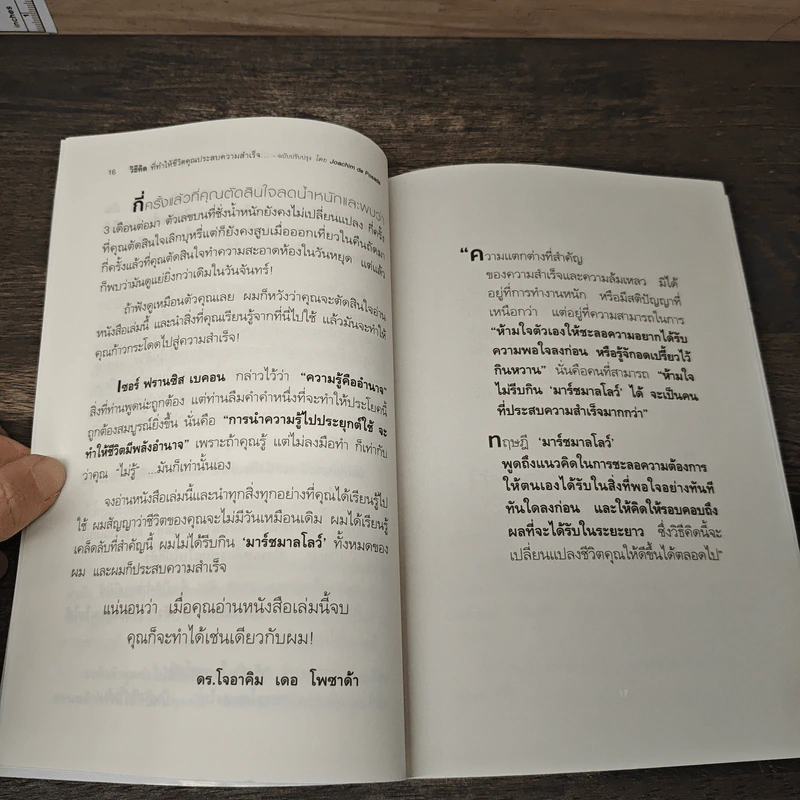 inches
1
16 วิธีคิด ที่ทำให้ชีวิตคุณประสบความสำเร็จ.... - ฉบับปรับปรุง โดย Joachim de Posada
กี่ครั้งแล้วที่คุณตัดสินใจลดน้ำหนักและพบว่า
3 เดือนต่อมา ตัวเลขบนที่ชั่งน้ำหนักยังคงไม่เปลี่ยนแปลง กี่ครั้ง
ที่คุณตัดสินใจเลิกบุหรี่แต่ก็ยังคงสูบเมื่อออกเที่ยวในคืนถัดมา
กี่ครั้งแล้วที่คุณตัดสินใจทำความสะอาดห้องในวันหยุด แต่แล้ว
ก็พบว่ามันดูแย่ยิ่งกว่าเดิมในวันจันทร์!
ถ้าฟังดูเหมือนตัวคุณเลย ผมก็หวังว่าคุณจะตัดสินใจอ่าน
หนังสือเล่มนี้ และนำสิ่งที่คุณเรียนรู้จากที่นี่ไปใช้ แล้วมันจะทำให้
คุณก้าวกระโดดไปสู่ความสำเร็จ!
เซอร์ ฟรานซิส เบคอน กล่าวไว้ว่า “ความรู้คืออำนาจ”
สิ่งที่ท่านพูดน่ะถูกต้อง แต่ท่านลืมคำคำหนึ่งที่จะทำให้ประโยคนี้
ถูกต้องสมบูรณ์ยิ่งขึ้น นั่นคือ “การนำความรู้ไปประยุกต์ใช้ จะ
ทำให้ชีวิตมีพลังอำนาจ” เพราะถ้าคุณรู้ แต่ไม่ลงมือทำ ก็เท่ากับ
ว่าคุณ “ไม่รู้” ...มันก็เท่านั้นเอง
จงอ่านหนังสือเล่มนี้และนำทุกสิ่งทุกอย่างที่คุณได้เรียนรู้ไป
ใช้ ผมสัญญาว่าชีวิตของคุณจะไม่มีวันเหมือนเดิม ผมได้เรียนรู้
เคล็ดลับที่สำคัญนี้ ผมไม่ได้รีบกิน ‘มาร์ชมาลโลว์’ ทั้งหมดของ
ผม และผมก็ประสบความสำเร็จ
แน่นอนว่า เมื่อคุณอ่านหนังสือเล่มนี้จบ
คุณก็จะทำได้เช่นเดียวกับผม!
ดร.โจอาคิม เดอ โพซาด้า
“ความแตกต่างที่สำคัญ
ของความสำเร็จและความล้มเหลว มิได้
อยู่ที่การทำงานหนัก หรือมีสติปัญญาที่
เหนือกว่า แต่อยู่ที่ความสามารถในการ
“ห้ามใจตัวเองให้ชะลอความอยากได้รับ
ความพอใจลงก่อน หรือรู้จักอดเปรี้ยวไว้
กินหวาน” นั่นคือคนที่สามารถ “ห้ามใจ
ไม่รีบกิน ‘มาร์ชมาลโลว์’ ได้ จะเป็นคน
ที่ประสบความสำเร็จมากกว่า”
ทฤษฎี ‘มาร์ชมาลโลว์’
พูดถึงแนวคิดในการชะลอความต้องการ
ให้ตนเองได้รับในสิ่งที่พอใจอย่างทันที
ทันใดลงก่อน และให้คิดให้รอบคอบถึง
ผลที่จะได้รับในระยะยาว ซึ่งวิธีคิดนี้จะ
เปลี่ยนแปลงชีวิตคุณให้ดีขึ้นได้ตลอดไป”
17